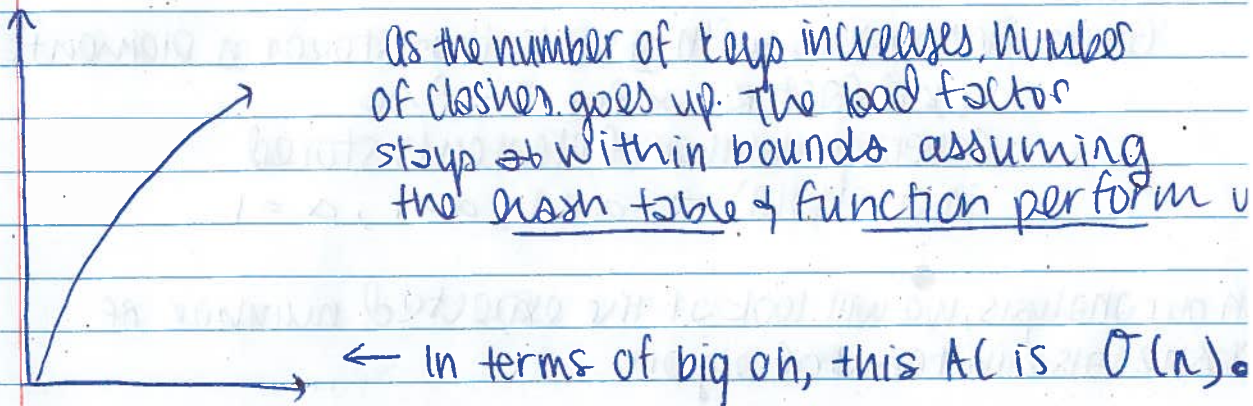 as the number of keys increases, number
of clashes goes up. The load factor
stays within bounds assuming
the hash table & function perform
← In terms of big oh, this AC is O(n).